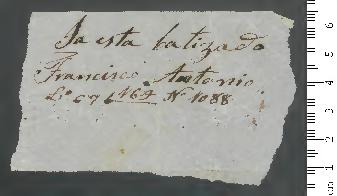 Ja esta batizado
Francisco Antonio
Lº 69 f 164 Nº 1088
6
5
4
3
2
1